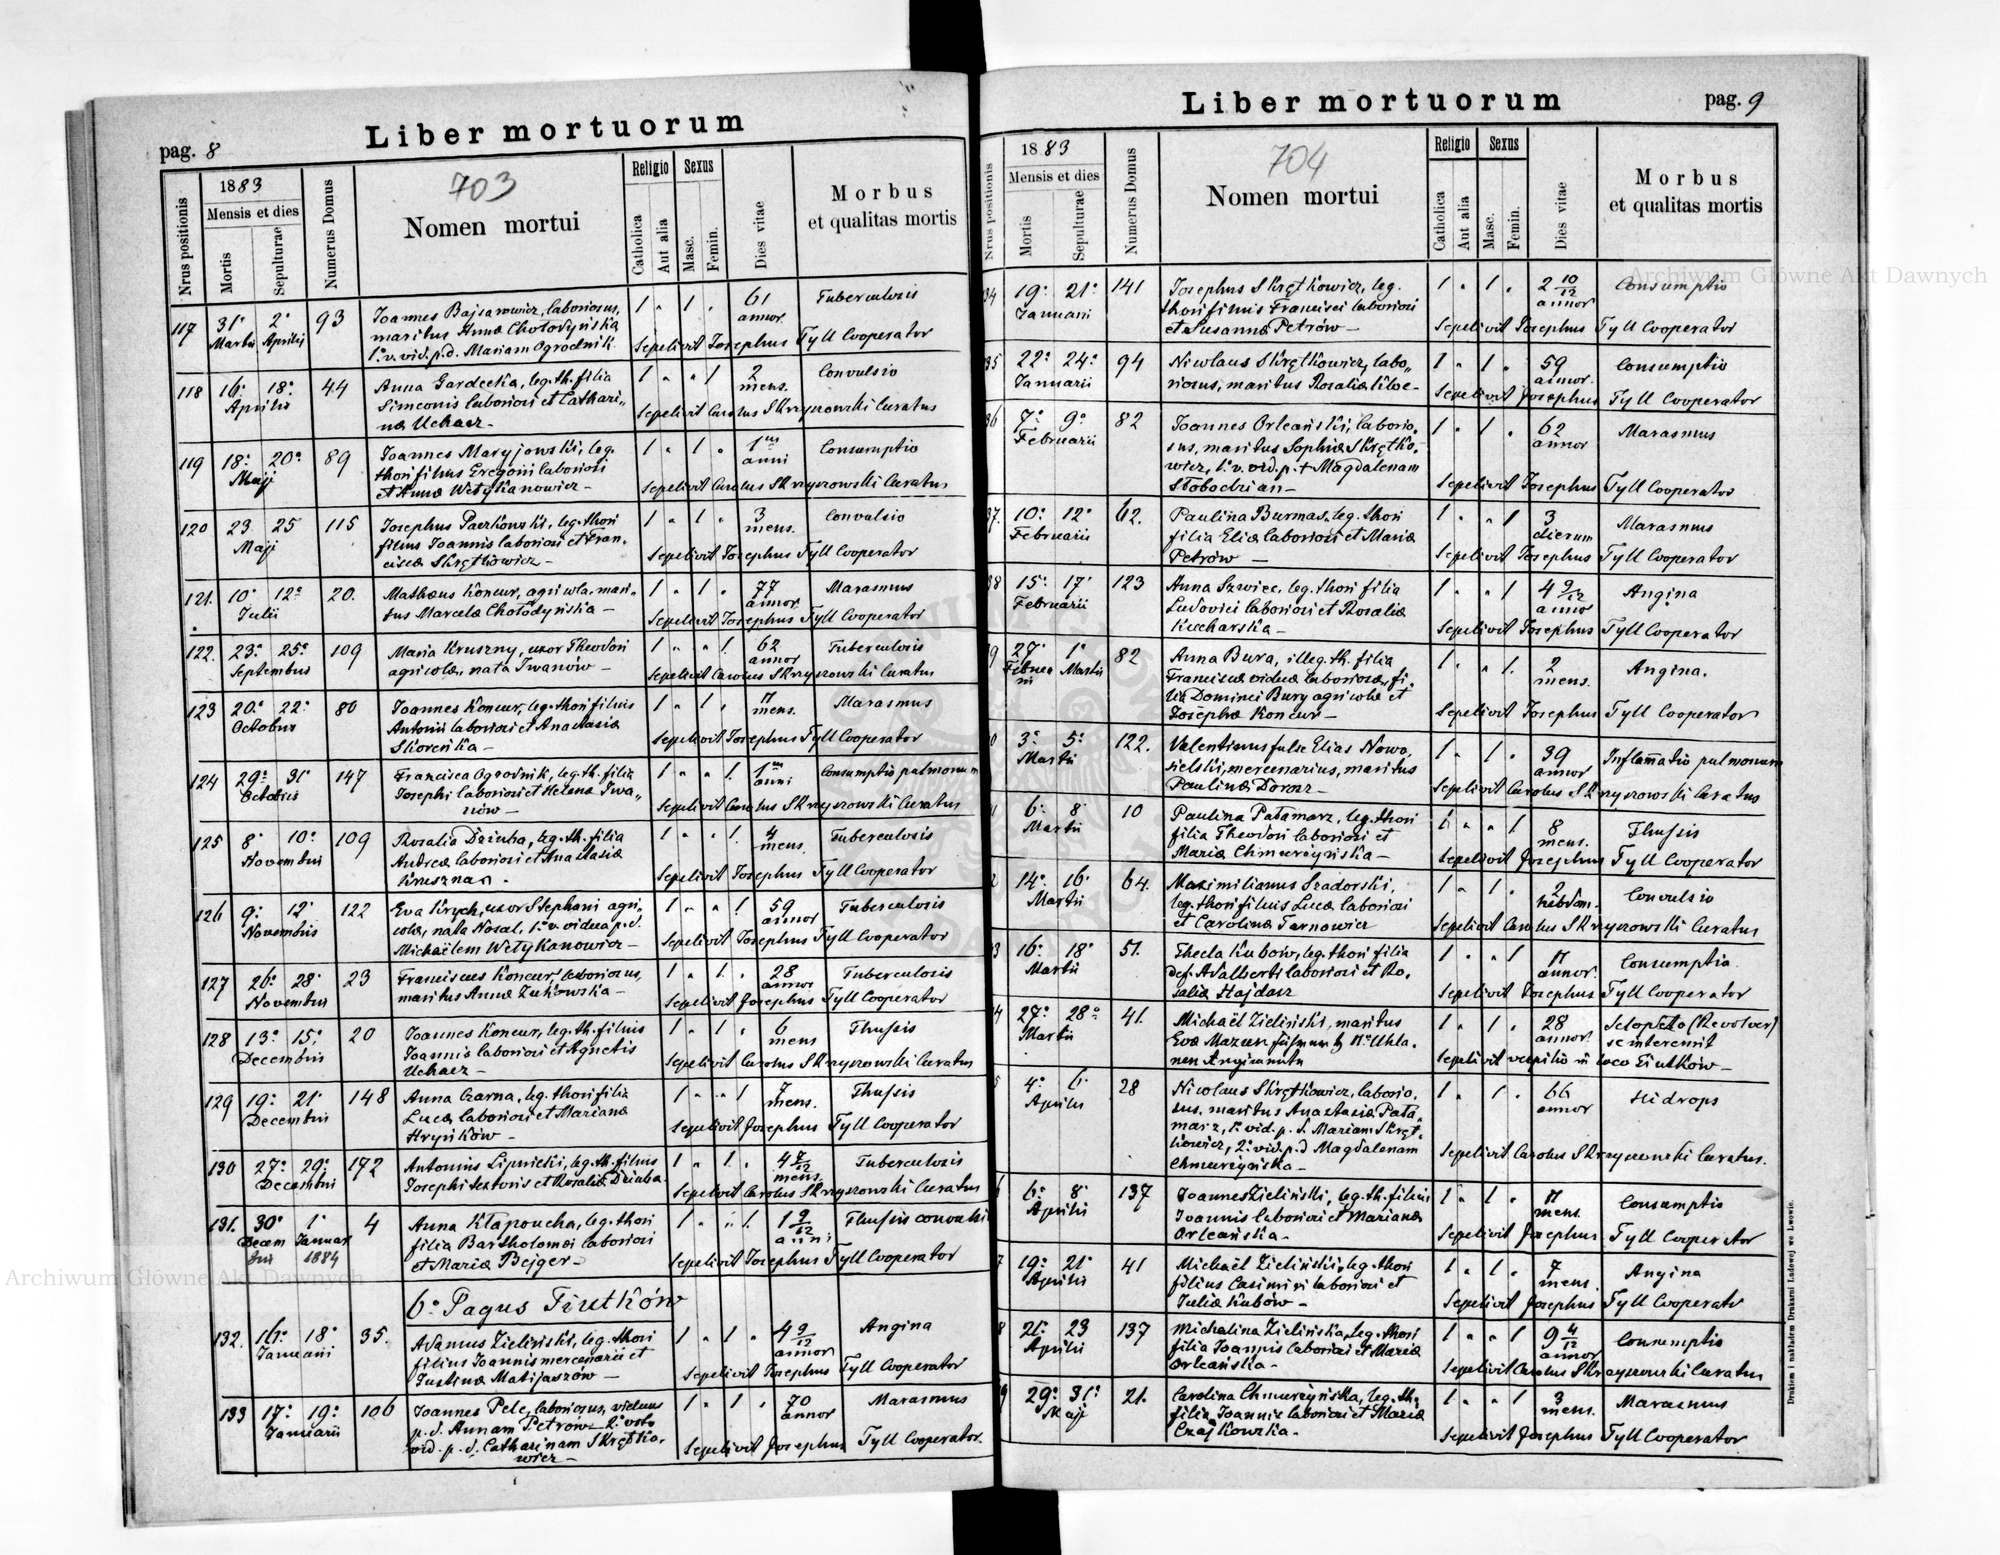 Liber mortuorum
pag. 8
703
Nrus positionis
1883
Mensis et dies
Mortis
Sepulturae
Numerus Domus
Nomen mortui
Religio
Catholica
Aut alia
Sexus
Masc.
Femin.
Dies vitae
Morbus
et qualitas mortis
117 31a 2a 93 Joannes Bajsarowicz, laboriosus, 1 " 1 " 61 Tuberculosis
Martii Aprilis maritus Annæ Chołodyńska annor.
1o v. vid. p. d. Mariam Ogrodnik Sepelivit Josephus Tyll Cooperator
118 16a 18a 44 Anna Gardecka, leg. th. filia 1 " " 1 2 Convulsio
Aprilis Simeonis laboriosi et Cathari„ mens.
næ Uchacz – Sepelivit Carolus Skrzyszowski Curatus
119 18a 20a 89 Joannes Maryjowski, leg. 1 " 1 " 1us Consumptio
Maji thori filius Gregorii laboriosi anni
et Annæ Wetykanowicz – Sepelivit Carolus Skrzyszowski Curatus
120 23 25 115 Josephus Paczkowski, leg. thori 1 " 1 " 3 Convulsio
Maji filius Joannis laboriosi et Fran„ mens.
ciscæ Skrętkowicz – Sepelivit Josephus Tyll Cooperator
121. 10a 12a 20. Mathæus Koncur, agricola, mari„ 1 " 1 " 77 Marasmus
Julii tus Marcelæ Chołodyńska – annor
Sepelivit Josephus Tyll Cooperator
122. 23a 25a 109 Maria Kruszny, uxor Theodori 1 " " 1 62 Tuberculosis
Septembris agricolæ, nata Iwanów – annor
Sepelivit Carolus Skrzyszowski Curatus
123 20a 22a 80 Joannes Koncur, leg. thori filius 1 " 1 " 11 Marasmus
Octobris Antonii laboriosi et Anastasiæ mens.
Skoreńka – Sepelivit Josephus Tyll Cooperator
124 29a 31a 147 Francisca Ogrodnik, leg. th. filia 1 " " 1 1us Consumptio pulmonum
Octobris Josephi laboriosi et Helenæ Iwa„ anni
nów – Sepelivit Carolus Skrzyszowski Curatus
125 8a 10a 109 Rosalia Dziuba, leg. th. filia 1 " " 1 4 Tuberculosis
Novembris Andreæ laboriosi et Anastasiæ mens.
Sepelivit Josephus Tyll Cooperator
126 9a 12a 122 Eva Krych, uxor Stephani agri„ 1 " " 1 59 Tuberculosis
Novembris colæ, nata Nosal, 1o v. vidua p. d. annor
Michaëlem Wetykanowicz – Sepelivit Josephus Tyll Cooperator
127 26a 28a 23 Franciscus Koncur, laboriosus, 1 " 1 " 28 Tuberculosis
Novembris maritus Annæ Żukowska – annor
Sepelivit Josephus Tyll Cooperator
128 13a 15a 20 Joannes Koncur, leg. th. filius 1 " 1 " 6 Thussis
Decembris Joannis laboriosi et Agnetis mens
Uchacz – Sepelivit Carolus Skrzyszowski Curatus
129 19a 21a 148 Anna Czarna, leg. thori filia 1 " " 1 7 Thussis
Decembris Lucæ laboriosi et Marianæ mens.
Hryńków – Sepelivit Josephus Tyll Cooperator
130 27a 29a 172 Antonius Lipnicki, leg. th. filius 1 " 1 " 4 7/12 Tuberculosis
Decembris Josephi textoris et Rosaliæ Dziuba mens.
Sepelivit Carolus Skrzyszowski Curatus
131. 30a 1a 4 Anna Kłapoucha, leg. thori 1 " " 1 1 9/12 Thussis convulsi
Decem Januar filia Bartholomæi laboriosi anni
bris 1884 et Mariæ Bejger – Sepelivit Josephus Tyll Cooperator
6o Pagus Fiutków
132. 16a 18a 35. Adamus Zieliński, leg. thori 1 " 1 " 4 9/12 Angina
Januarii filius Joannis mercenarii et annor
Justinæ Matijaszów – Sepelivit Josephus Tyll Cooperator
133 17a 19a 106 Joannes Pelc, laboriosus, viduus 1 " 1 " 70 Marasmus
Januarii p. d. Annam Petrów 2o voto annor
vid. p. d. Catharinam Skrętko„ Sepelivit Josephus Tyll Cooperator.
wicz –
Liber mortuorum
pag. 9
704
Nrus positionis
1883
Mensis et dies
Mortis
Sepulturae
Numerus Domus
Nomen mortui
Religio
Catholica
Aut alia
Sexus
Masc.
Femin.
Dies vitae
Morbus
et qualitas mortis
34 19a 21a 141 Josephus Skrętkowicz, leg. 1 " 1 " 2 10/12 Consumptio
Januarii thori filius Francisci laboriosi annor
et Susannæ Petrów – Sepelivit Josephus Tyll Cooperator
35 22a 24a 94 Nicolaus Skrętkowicz, labo„ 1 " 1 " 59 Consumptio
Januarii riosus, maritus Rosaliæ annor.
Sepelivit Josephus Tyll Cooperator
36 7a 9a 82 Joannes Orleański, laborio„ 1 " 1 " 62 Marasmus
Februarii sus, maritus Sophiæ Skrętko„ annor
wicz, 1o v. vid. p. + Magdalenam
Słobodzian – Sepelivit Josephus Tyll Cooperator
37. 10a 12a 62. Paulina Burmas, leg. thori 1 " " 1 3 Marasmus
Februarii filia Eliæ laboriosi et Mariæ dierum
Petrów – Sepelivit Josephus Tyll Cooperator
38 15a 17a 123 Anna Szwiec, leg. thori filia 1 " " 1 4 9/12 Angina
Februarii Ludovici laboriosi et Rosaliæ annor
Kucharska – Sepelivit Josephus Tyll Cooperator
39 27a 1a 82 Anna Bura, illeg. th. filia 1 " " 1 2 Angina.
Februa Martii Franciscæ viduæ laboriosæ, fi„ mens.
rii liæ Dominici Bury agricolæ et
Josephæ Koncur – Sepelivit Josephus Tyll Cooperator
0 3a 5a 122. Valentinus false Elias Nowo„ 1 " 1 " 39 Inflammatio pulmonum
Martii sielski, mercenarius, maritus annor
Paulinæ Dorosz – Sepelivit Carolus Skrzyszowski Curatus
1 6a 8a 10 Paulina Patamarz, leg. thori 1 " " 1 8 Thussis
Martii filia Theodori laboriosi et mens.
Mariæ Chmurzyńska – Sepelivit Josephus Tyll Cooperator
2 14a 16a 64. Maximilianus Szadorski, 1 " 1 " 2 Convulsio
Martii leg. thori filius Lucæ laboriosi hebdom.
et Carolinæ Tarnowicz Sepelivit Carolus Skrzyszowski Curatus
3 16a 18a 51. Thecla Kubów, leg. thori filia 11 Consumptio
Martii def. Adalberti laboriosi et Ro„ annor.
saliæ Hajdasz Sepelivit Josephus Tyll Cooperator
4 27a 28a 41. Michaël Zieliński, maritus 1 " 1 " 28 Sclopeto (Revolver)
Martii Evæ Mazur annor. se interemit
Sepelivit vespilio in loco Fiutków –
5 4a 6a 28 Nicolaus Skrętkowicz, laborio„ 1 " 1 " 66 Hidrops
Aprilis sus, maritus Anastasiæ Pata„ annor
marz, 1o vid. p. d. Mariam Skręt„
kowicz, 2o vid. p. d. Magdalenam Sepelivit Carolus Skrzyszowski Curatus.
Chmurzyńska –
6 6a 8a 137 Joannes Zieliński, leg. th. filius 1 " 1 " 11 Consumptio
Aprilis Joannis laboriosi et Marianæ mens.
Orleańska – Sepelivit Josephus Tyll Cooperator
7 19a 21a 41 Michaël Zieliński, leg. thori 1 " 1 " 7 Angina
Aprilis filius Casimiri laboriosi et mens.
Juliæ Kubów – Sepelivit Josephus Tyll Cooperator
8 21a 23 137 Michalina Zielińska, leg. thori 1 " " 1 9 4/12 Consumptio
Aprilis filia Joannis laboriosi et Mariæ annor
Orleańska – Sepelivit Carolus Skrzyszowski Curatus
9 29a 31a 21. Carolina Chmurzyńska, leg. th. 1 " " 1 3 Marasmus
Maji filia Joannis laboriosi et Mariæ mens.
Czajkowska – Sepelivit Josephus Tyll Cooperator
Drukiem i nakładem Drukarni Ludowej we Lwowie.
Archiwum Główne Akt Dawnych
Archiwum Główne Akt Dawnych